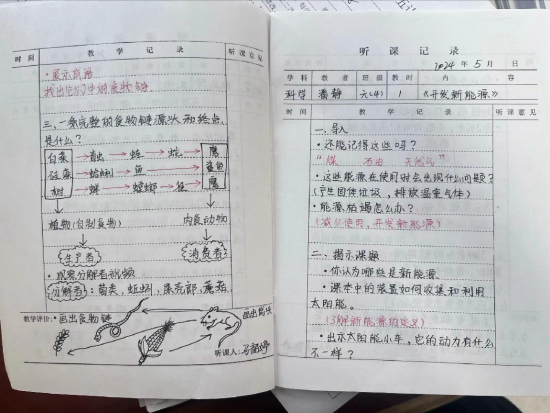 时间 教学记录 听课意见
·展示成果
找出它们中的食物链
三、一条完整的食物链源头和终点
是什么？
白菜 → 青虫 → 蛙 → 蛇 → 鹰
植物(自制食物) 肉食动物
生产者 消费者
·观察分解者视频
分解者：菌类，蚯蚓，屎壳郎，蘑菇
教学评价：·画出食物链
听课人：
听课记录
2024年5月 日
学科 教者 班级 教时 内容
科学 潘静 六(4) 1 《开发新能源》
时间 教学记录 听课意见
一、导入
·还能记得这些吗？
“煤 石油 天然气”
·这些能源在使用时会出现什么问题？
(产生固体垃圾，排放温室气体)
·能源枯竭怎么办？
(减少使用，开发新能源)
二、揭示课题
·你认为哪些是新能源
·课本中的装置如何收集和利用
太阳能。
(了解新能源的定义)
·出示太阳能小车，它的动力有什么
不一样？